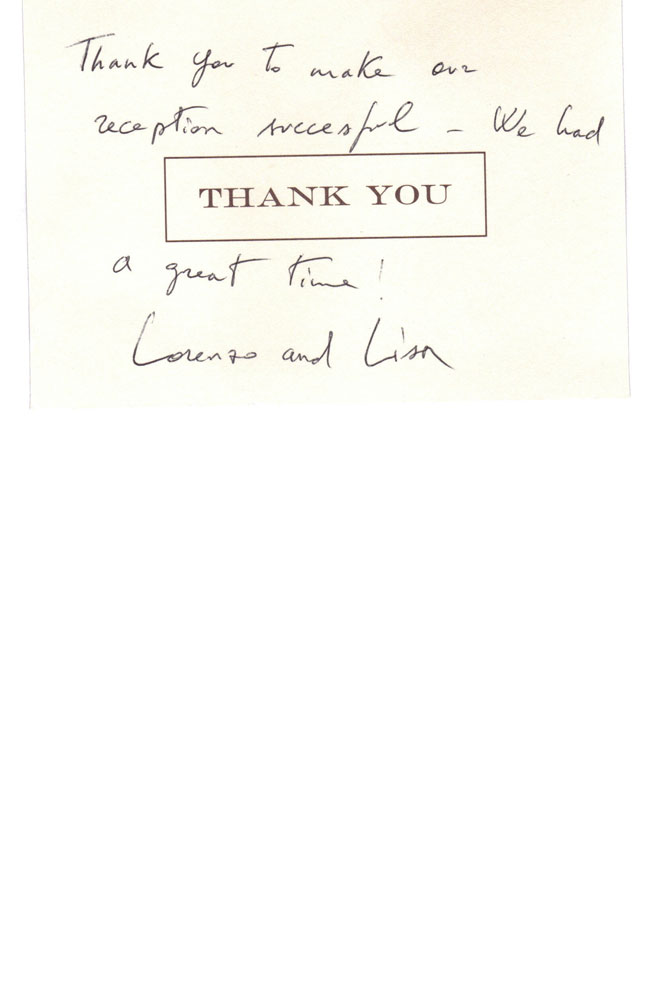 Thank you to make our
reception succesful - We had
THANK YOU
a great time!
Lorenzo and Lisa